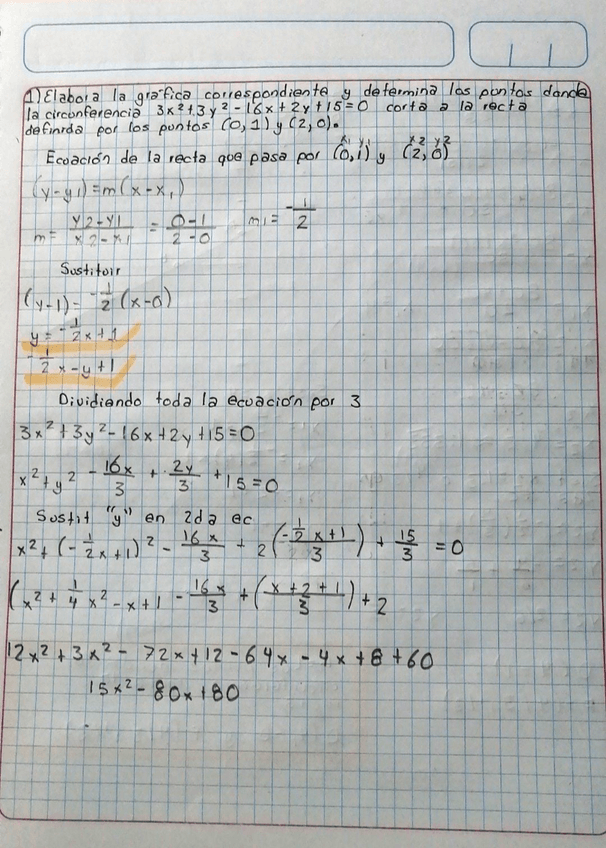 1) Elabora la gráfica correspondiente y determina los puntos donde
la circonferencia 3x²+3y²-16x+2y+15=0 corta a la recta
definida por los puntos (0,1) y (2,0).
Ecuación de la recta que pasa por (0,1) y (2,0)
x1 y1 x2 y2
(y-y1)=m(x-x1)
m= y2-y1/x2-x1 = 0-1/2-0 m1= -1/2
Sustitoir
(y-1)= -1/2 (x-0)
y= -1/2x+1
-1/2 x-y+1
Dividiendo toda la ecuación por 3
3x²+3y²-16x+2y+15=0
x²+y² -16x/3 + 2y/3 +15=0
Sustit "y" en 2da ec
x²+(-1/2x+1)² - 16x/3 + 2(-1/2x+1/3) + 15/3 =0
(x²+1/4x²-x+1 -16x/3 +(x+2+1/3)+2
12x²+3x²- 72x+12-64x-4x+8+60
15x²-80x+80